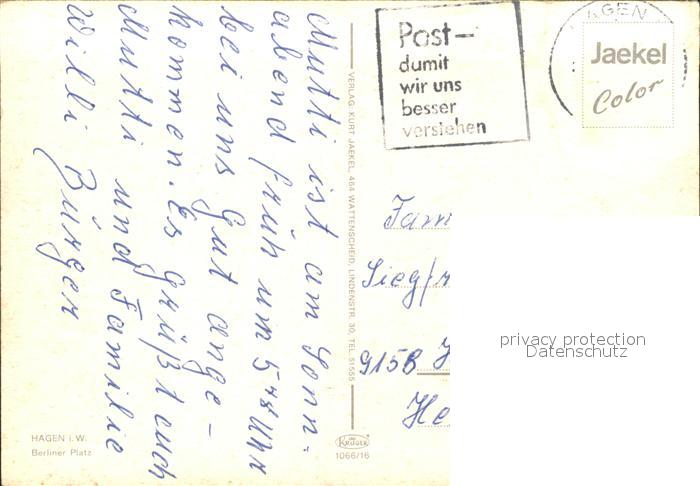 Mutti ist am Sonn-
abend früh um 5 Uhr
bei uns gut ange-
kommen. Es grüßt euch
Mutti und Familie
Willi Bürger
HAGEN i. W.
Berliner Platz
VERLAG: KURT JAEKEL, 464 WATTENSCHEID, LINDENSTR. 30, TEL. 51555
KRÜGER
1066/16
Post-
damit
wir uns
besser
verstehen
HAGEN
Jaekel
Color
Fam
Siegfr
915B
He
privacy protection
Datenschutz